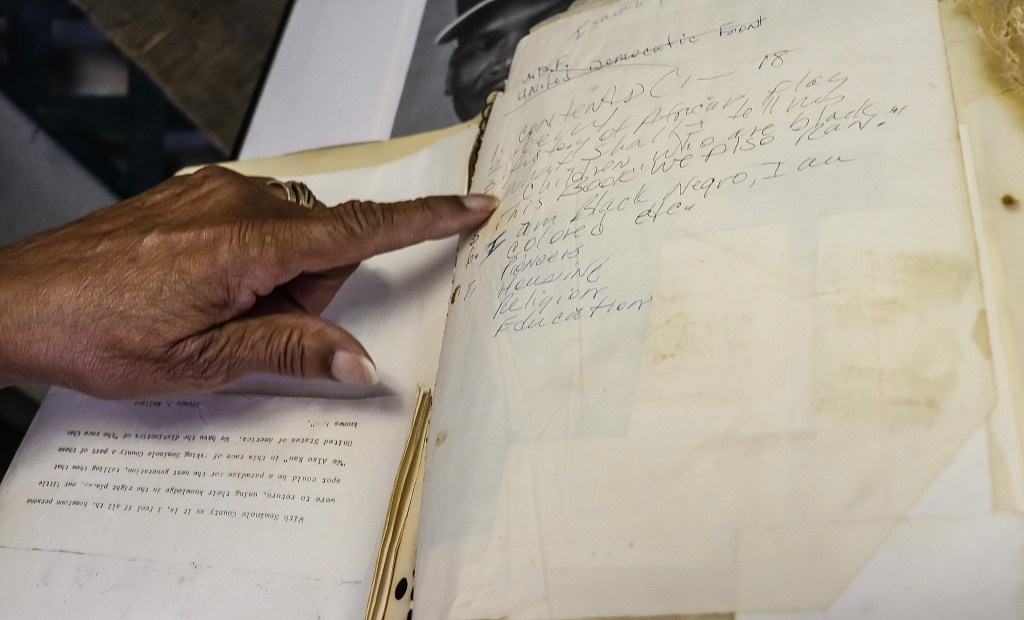 U.D.F.
United Democratic Front
contents 18
1.
2. History of African Flag
What shall I tell my
children who are black
This Book "We Also Ran."
I am Black Negro, I am
colored etc.
Pioneers
7. Housing
Religion
Education
With Seminole County as it is, I feel if all hometown persons
were to return, using their knowledge in the right our little
spot could be a paradise for the next generation, telling them that
"We Also Ran" in this race of Seminole County a part of these
United States of America. We have the distinction of "the race that
knows